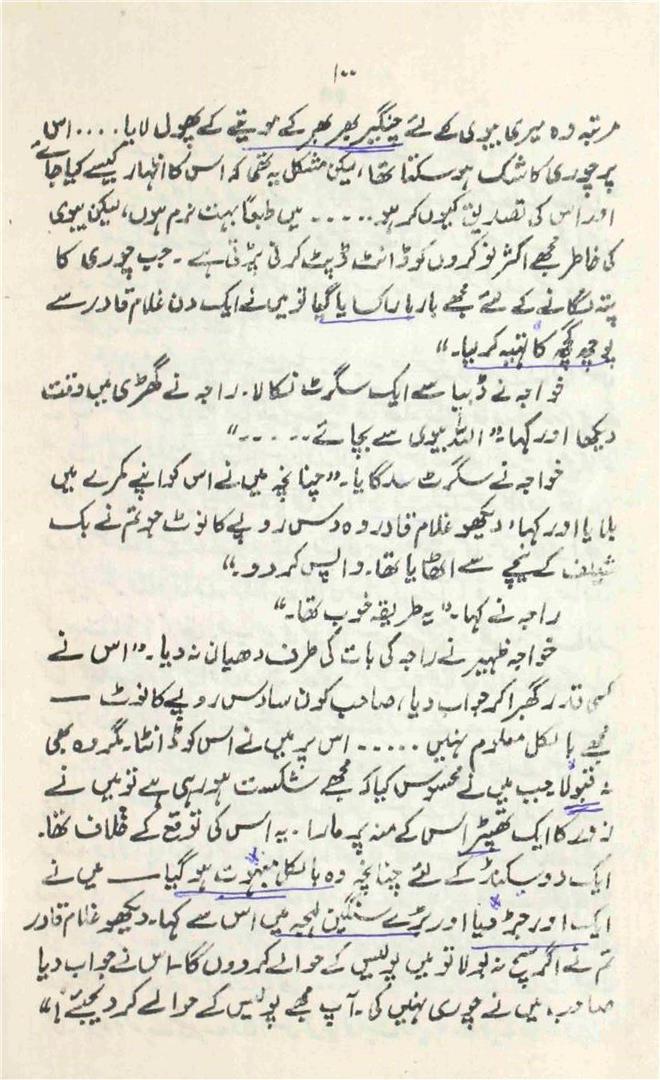 ۱۰۰
مرتبہ وہ میری بیوی کے لئے چنگیر بھر بھر کے موتیے کے پھول لایا .... اس
پر چوری کا شک ہو سکتا تھا، لیکن مشکل یہ تھی کہ اس کا اظہار کیسے کیا جائے
اور اس کی تصدیق کیوں کر ہو ..... میں طبعاً بہت نرم ہوں، لیکن بیوی
کی خاطر مجھے اکثر نوکروں کو ڈانٹ ڈپٹ کرنی پڑتی ہے ۔ جب چوری کا
پتہ لگانے کے لئے مجھے بار بار اکسایا گیا تو میں نے ایک دن غلام قادر سے
پوچھ گچھ کا تہیہ کر لیا ۔"
خواجہ نے ڈبیا سے ایک سگرٹ نکالا ۔ راجہ نے گھڑی میں وقت
دیکھا اور کہا " اللہ بیوی سے بچائے ....."
خواجہ نے سگرٹ سلگایا ۔ "چنانچہ میں نے اس کو اپنے کمرے میں
بلایا اور کہا، دیکھو غلام قادر وہ دس روپے کا نوٹ جو تم نے بک
شیلف کے نیچے سے اٹھایا تھا ۔ واپس کر دو ۔"
راجہ نے کہا ۔ " یہ طریقہ خوب تھا ۔"
خواجہ ظہیر نے راجہ کی بات کی طرف دھیان نہ دیا ۔ " اس نے
کسی قدر گھبرا کر جواب دیا، صاحب کون سا دس روپے کا نوٹ —
مجھے بالکل معلوم نہیں ..... اس پر میں نے اس کو ڈانٹا ۔ مگر وہ بھی
نہ قبولا جب میں نے محسوس کیا کہ مجھے شکست ہو رہی ہے تو میں نے
زور کا ایک تھپڑ اس کے منہ پر مارا ۔ یہ اس کی توقع کے خلاف تھا ۔
ایک دو سیکنڈ کے لئے چنانچہ وہ بالکل مبہوت ہو گیا — میں نے
ایک اور جڑ دیا اور بڑے سنگین لہجہ میں اس سے کہا ۔ دیکھو غلام قادر
تم نے اگر سچ نہ بولا تو میں پولیس کے حوالے کر دوں گا ۔ اس نے جواب دیا
صاحب، میں نے چوری نہیں کی ۔ آپ مجھے پولیس کے حوالے کر دیجئے !"